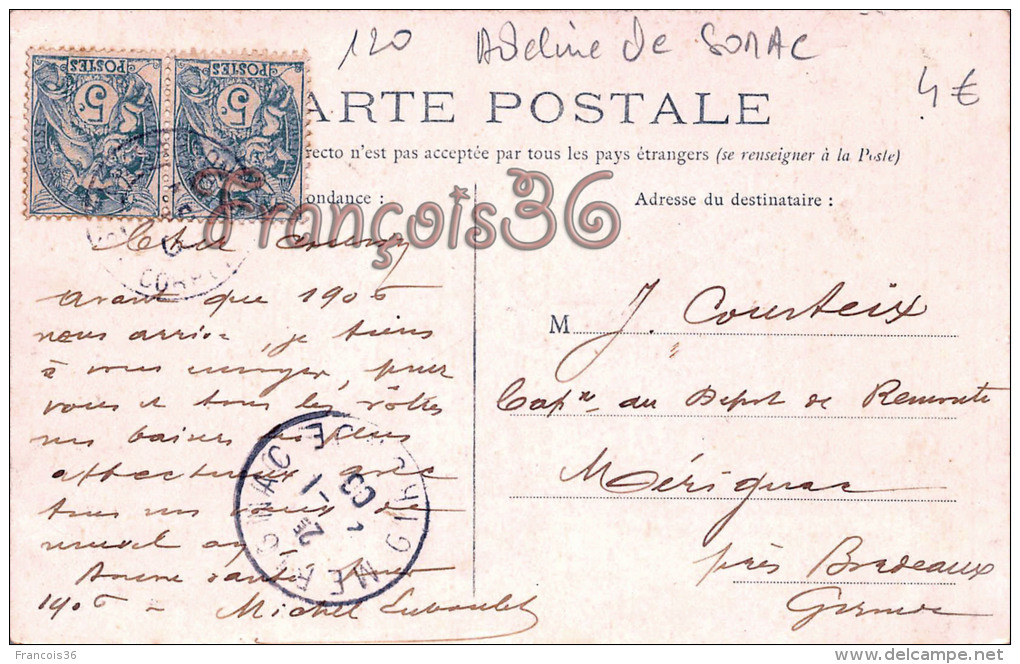 120 Adeline de SOMAC
4€
POSTES 5c
POSTES 5c
ARTE POSTALE
recto n'est pas acceptée par tous les pays étrangers (se renseigner à la Poste)
ondance :
Adresse du destinataire :
françois36
Cher
avant que 1906
nous arrive, je tiens
à vous envoyer, pour
vous et tous les vôtres
nos baisers les plus
affectueux avec
tous nos vœux de
nouvel an
Bonne santé pour
1906 - Michel
M J. Courteix
Capne au Depot de Remonte
Mérignac
près Bordeaux
Gironde
MERIGNAC
GIRONDE
Francois36
delcampe.net